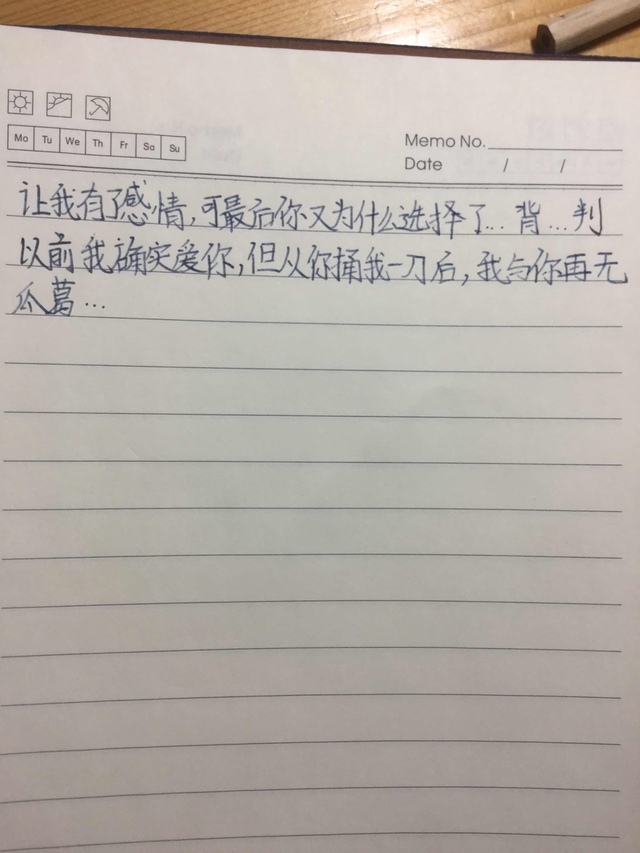 Mo Tu We Th Fr Sa Su
Memo No.
Date / /
让我有了感情,可最后你又为什么选择了...背...判
以前我确实爱你,但从你捅我一刀后,我与你再无
瓜葛...